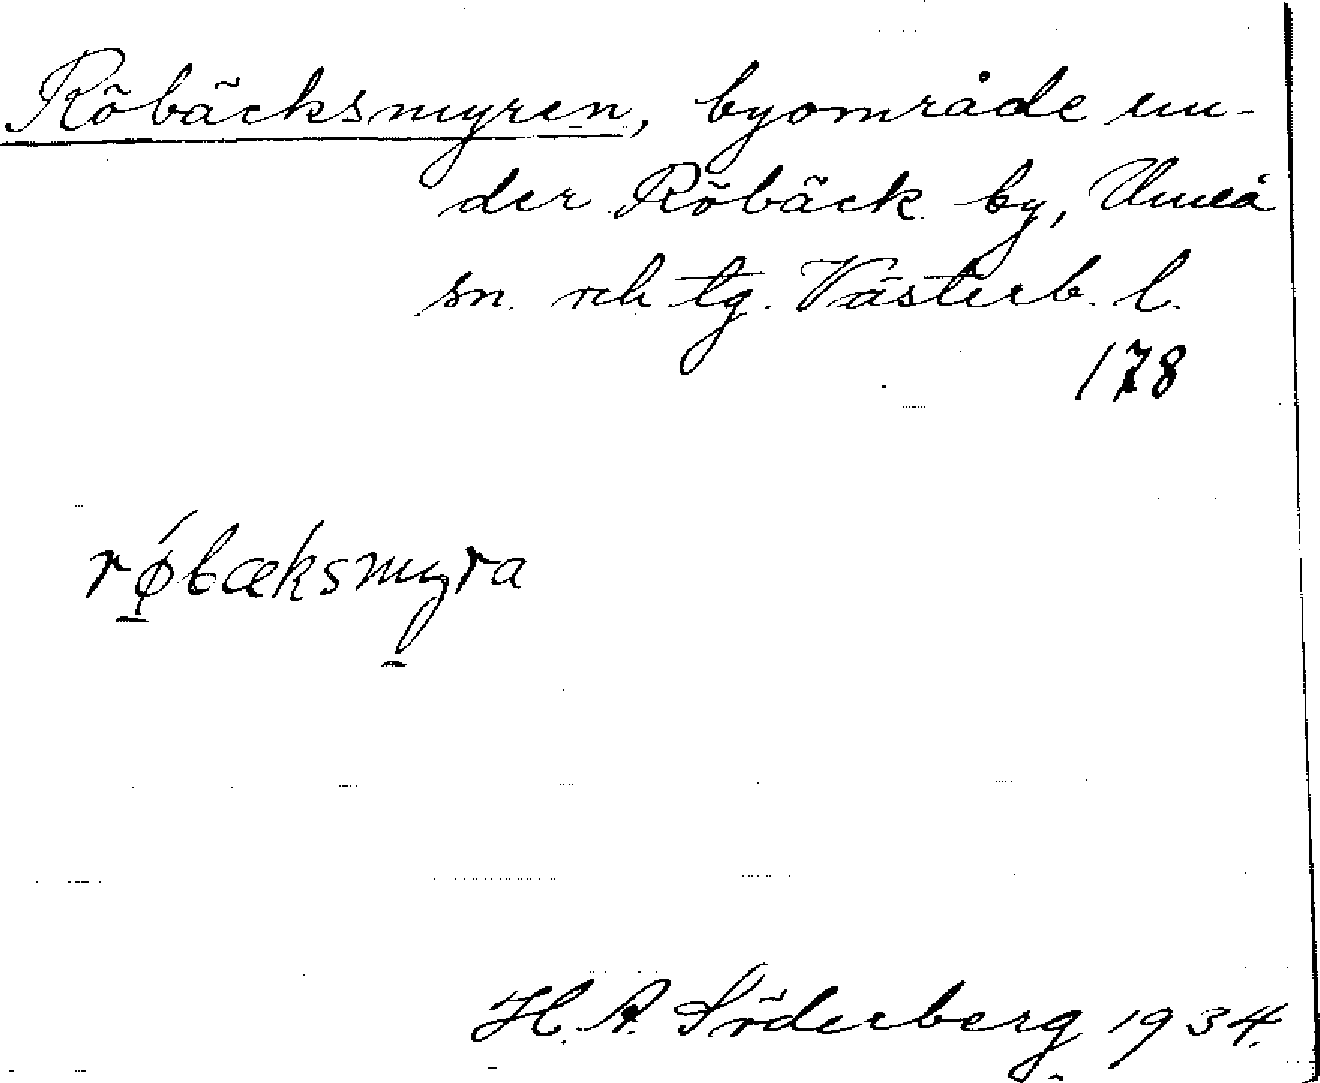 Röbäcksmyren, byområde un-
der Röbäck by, Umeå
sn. och tg. Västerb. l.
178
rǿbæksmyra
H. A. Söderberg 1934.